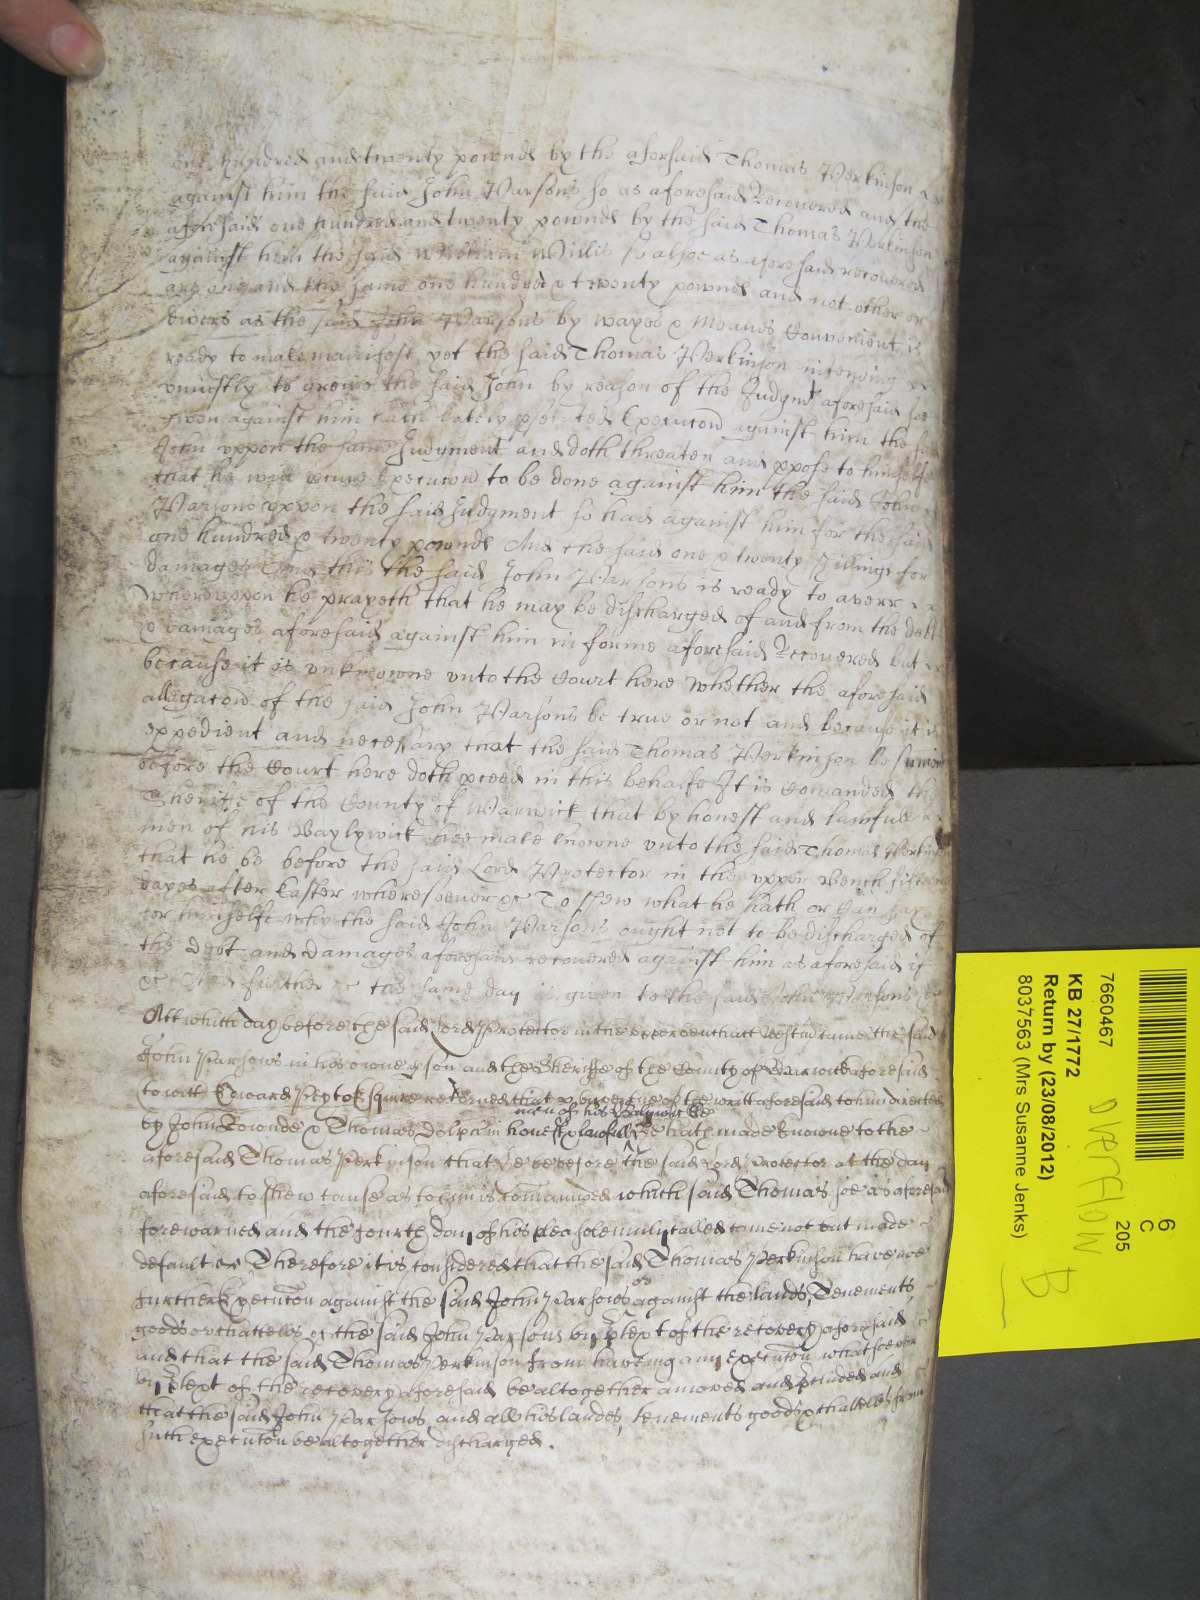 one hundred and twenty pownds by the aforsaid Thomas Perkinson
against him the said John Parsons so as aforesaid Recouered and the
aforesaid one hundred and twenty pownds by the said Thomas Perkinson
against him the said William Willis so alsoe as aforesaid recouered
are one and the same one hundred & twenty pownds and not other or
divers as the said John Parsons by wayes & Meanes Convenient is
ready to make manifest yet the said Thomas Perkinson intending
uniustly to greive the said John by reason of the Judgmt aforesaid soe
given against him hath lately Execucon against him the
John vppon the same Judgment and doth threaten and ppose to himselfe
that he will Execucon to be done against him the said John
Parsons vppon the said Judgment so had against him for the said
one hundred & twenty pownds And the said one & twenty shillings for
damages And this the said John Parsons is ready to averr
Wherevppon he prayeth that he may be discharged of and from the debt
& damages aforesaid against him in forme aforesaid Recouered but
because it is vnknowne vnto the Court here whether the aforesaid
allegacon of the said John Parsons be true or not and because it is
expedient and necessary that the said Thomas Perkinson be
before the Court here doth pceed in this behalfe It is Comanded the
Sheriffe of the County of Warwick that by honest and lawfull
men of his Baylywick hee make knowne vnto the said Thomas Perkinson
that he be before the said Lord Protector in the vpper Bench fifteene
dayes after Easter wheresoever &c To shew what he hath or Can say
for himselfe why the said John Parsons ought not to be discharged of
the debt and damages aforesaid recouered against him as aforesaid if
&c And further &c the same day is given to the said John Parsons &c
Att which day before the said Lord Protector in the vpper bench att Westm came the said
John Parsons in his owne pson and the Sheriffe of the County of Warwick aforesaid
to witt Edward Peyto Esquire returned that by vertue of the writt aforesaid to him directed
men of his Baliwick he
by John Townde & Thomas Dolphin honest & lawfull he hath made knowne to the
aforesaid Thomas Perkinson that he be before the said Lord Protector at the day
aforesaid to shew cause as to him is comanded which said Thomas soe as aforesaid
forewarned and the fourth day of his plea solemnly called came not but made
default &c Therefore it is considered that the said Thomas Perkinson have noe
or
further Execucon against the said John Parsons against the lands, Tenements,
goods or chattells of the said John Parsons by ptext of the recovery aforesaid
and that the said Thomas Perkinson from haveing any execucon whatsoever
by ptext of the recovery aforesaid be altogether amoved and pcluded and
that the said John Parsons and all his landes, tenements goods & chattells from
such execucon be altogether discharged.
7660467
KB 27/1772
Return by (23/08/2012)
8037563 (Mrs Susanne Jenks)
6
C
205
OVERFLOW
B